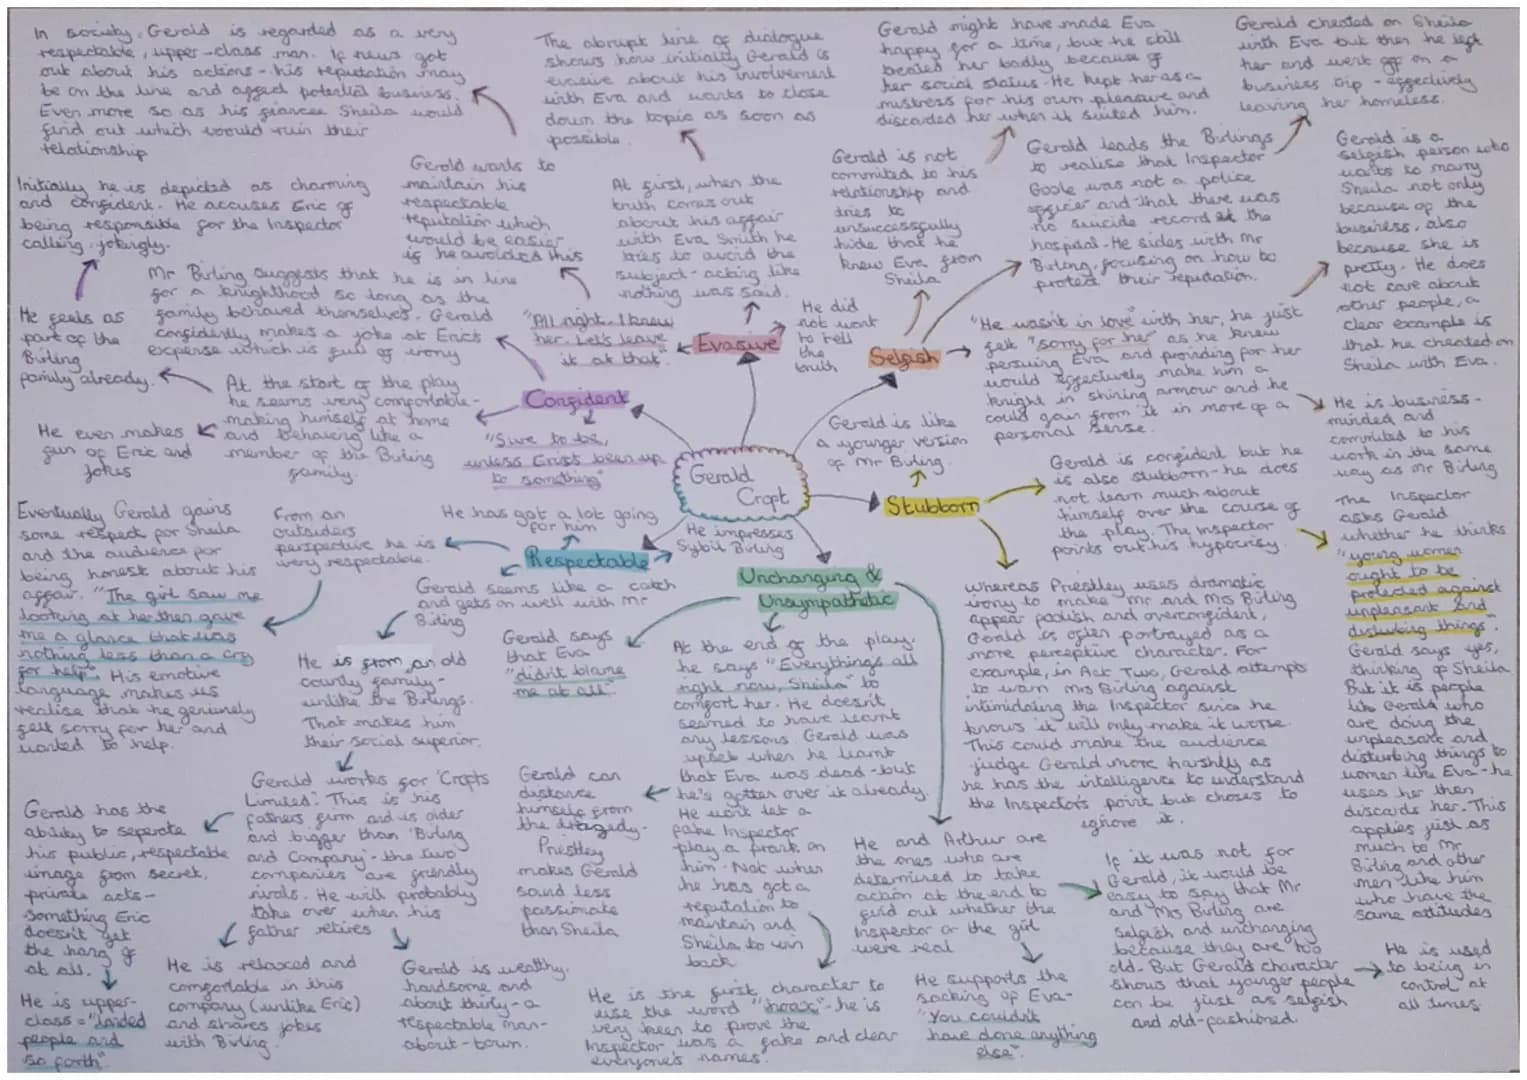 In society, Gerald is regarded as a very
respectable, upper-class man. If news got
out about his actions - his reputation may
be on the line and affect potential business.
Even more so as his fiancée Sheila would
find out which would ruin their
relationship
The abrupt line of dialogue
shows how initially Gerald is
evasive about his involvement
with Eva and wants to close
down the topic as soon as
possible.
Gerald might have made Eva
happy for a time, but he still
treated her badly because of
her social status. He kept her as a
mistress for his own pleasure and
discarded her when it suited him.
Gerald cheated on Sheila
with Eva but then he left
her and went off on a
business trip - effectively
leaving her homeless.
Initially he is depicted as charming
and confident. He accuses Eric of
being responsible for the Inspector
calling jokingly.
Gerald wants to
maintain his
respectable
reputation which
would be easier
is he avoided this
At first, when the
truth comes out
about his affair
with Eva Smith he
tries to avoid the
subject - acting like
nothing was said.
Gerald is not
commited to his
relationship and
tries to
unsuccessfully
hide that he
knew Eva from
Sheila
Gerald leads the Birlings
to realise that Inspector
Goole was not a police
officer and that there was
no suicide record at the
hospital. He sides with Mr
Birling, focusing on how to
protect their reputation.
Gerald is a
selfish person who
wants to marry
Sheila not only
because of the
business, also
because she is
pretty. He does
not care about
other people, a
clear example is
that he cheated on
Sheila with Eva.
He feels as
part of the
Birling
family already.
Mr Birling suggests that he is in line
for a knighthood so long as the
family behaved themselves. Gerald
confidently makes a joke at Eric's
expense which is full of irony
"All right. I knew
her. Let's leave
it at that"
Evasive
He did
not want
to tell
the
truth
Selfish
"He wasn't in love" with her, he just
felt "sorry for her" as he knew
persuing Eva and providing for her
would effectively make him a
knight in shining armour and he
could gain from it in more of a
personal sense.
He even makes
fun of Eric and
jokes
At the start of the play
he seems very comfortable -
making himself at home
and behaving like a
member of the Birling
family.
Confident
"Sure to be,
unless Eric's been up
to something"
Gerald
Croft
Gerald is like
a younger version
of Mr Birling.
He is business-
minded and
commited to his
work in the same
way as Mr Birling
Stubborn
Gerald is confident but he
is also stubborn - he does
not learn much about
himself over the course of
the play. The inspector
points out his hypocrisy.
The Inspector
asks Gerald
whether he thinks
"young women
ought to be
protected against
unpleasant and
disturbing things".
Gerald says yes,
thinking of Sheila
But it is people
like Gerald who
are doing the
unpleasant and
disturbing things to
women like Eva - he
uses her then
discards her. This
applies just as
much to Mr
Birling and other
men like him
who have the
same attitudes
Eventually Gerald gains
some respect for Sheila
and the audience for
being honest about his
affair. "The girl saw me
looking at her then gave
me a glance that was
nothing less than a cry
for help". His emotive
language makes us
realise that he genuinely
felt sorry for her and
wanted to help.
From an
outsiders
perspective he is
very respectable.
He has got a lot going
for him
Respectable
He impresses
Sybil Birling
Gerald seems like a catch
and gets on well with Mr
Birling
Unchanging &
Unsympathetic
Whereas Priestley uses dramatic
irony to make Mr and Mrs Birling
appear foolish and overconfident,
Gerald is often portrayed as a
more perceptive character. For
example, in Act Two, Gerald attempts
to warn Mrs Birling against
intimidating the Inspector since he
knows it will only make it worse.
This could make the audience
judge Gerald more harshly as
he has the intelligence to understand
the Inspector's point but choses to
ignore it.
He is from an old
county family -
unlike the Birlings.
That makes him
their social superior.
Gerald says
that Eva
"didn't blame
me at all"
At the end of the play,
he says "Everything's all
right now, Sheila" to
comfort her. He doesn't
seemed to have learnt
any lessons Gerald was
upset when he learnt
that Eva was dead - but
he's gotten over it already.
He won't let a
fake Inspector
play a prank on
him - Not when
he has got a
reputation to
maintain and
Sheila to win
back
Gerald has the
ability to seperate
his public, respectable
image from secret,
private acts -
something Eric
doesn't get
the hang of
at all.
Gerald works for 'Crofts
Limited'. This is his
fathers firm and is older
and bigger than 'Birling
and Company' - the two
companies are friendly
rivals. He will probably
take over when his
father retires
Gerald can
distance
himself from
the tragedy -
Priestley
makes Gerald
sound less
passionate
than Sheila
He and Arthur are
the ones who are
determined to take
action at the end to
find out whether the
Inspector or the girl
were real
If it was not for
Gerald, it would be
easy to say that Mr
and Mrs Birling are
selfish and unchanging
because they are too
old. But Gerald's character
shows that younger people
can be just as selfish
and old-fashioned.
He is used
to being in
control at
all times.
He is upper-
class = "landed
people and
so forth"
He is relaxed and
comfortable in this
company (unlike Eric)
and shares jokes
with Birling.
Gerald is wealthy,
handsome and
about thirty - a
respectable man-
about-town.
He is the first character to
use the word "hoax" - he is
very keen to prove the
Inspector was a fake and clear
everyone's names.
He supports the
sacking of Eva -
"You couldn't
have done anything
else".